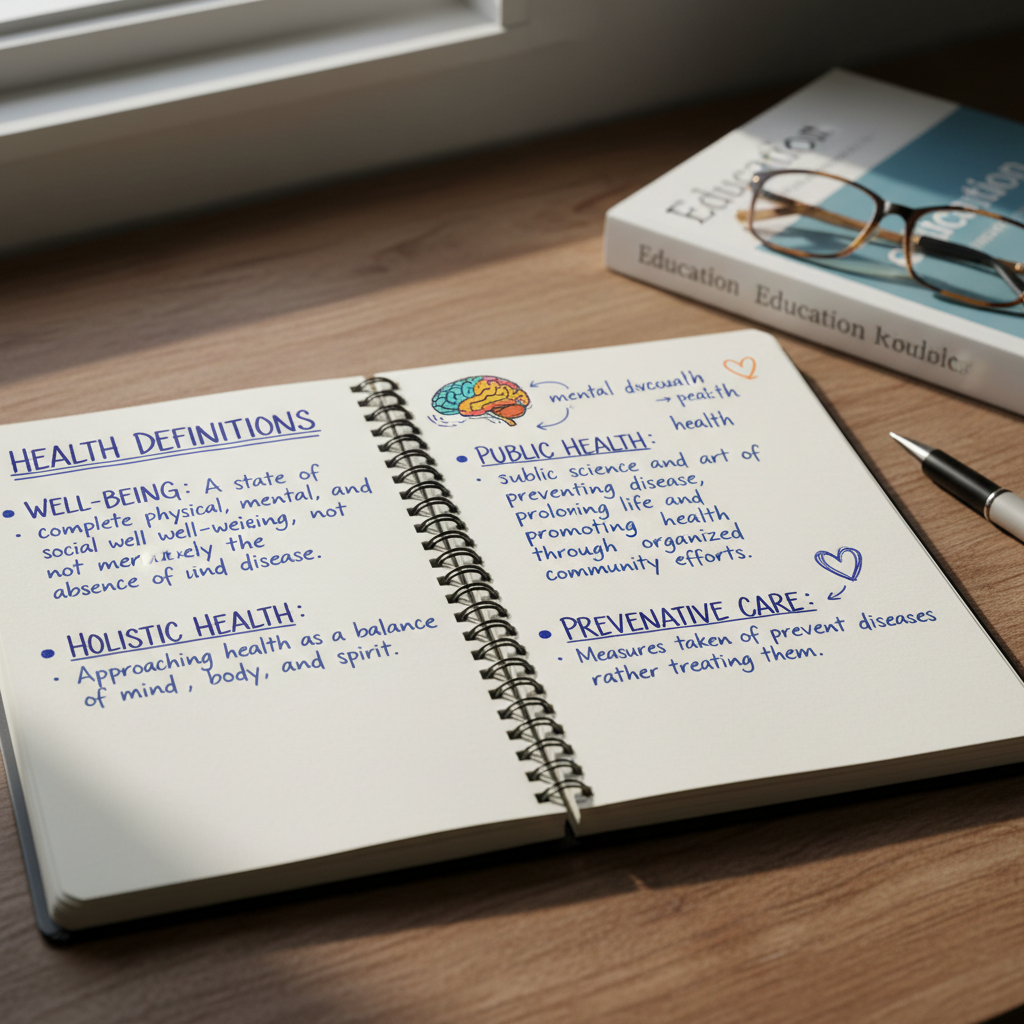 HEALTH DEFINITIONS
• WELL-BEING: A state of
· complete physical, mental, and
social well well-weieing, not
not mer the
absence of disease.
• HOLISTIC HEALTH:
· Approaching health as a balance
of mind , body, and spirit.
mental
→ health
• PUBLIC HEALTH:
· sublic science and art of
preventing disease,
proloning life and
promoting health
through organized
community efforts.
• PREVENATIVE CARE:
· Measures taken of prevent diseases
rather treating them.
Education
Education Education